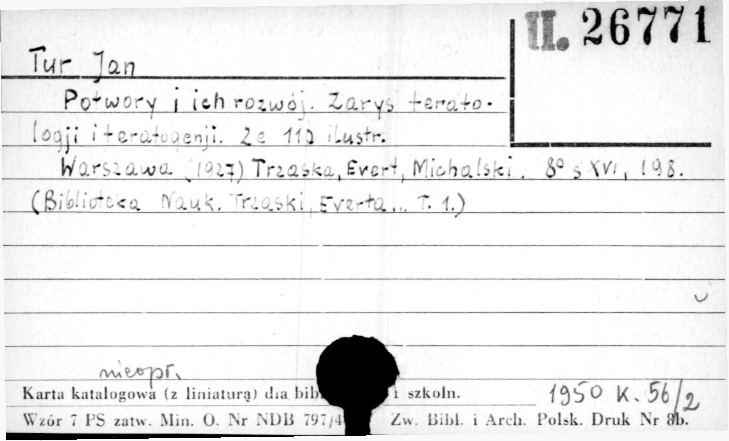 II. 26771
Tur Jan
Potwory i ich rozwój. Zarys terato-
logji i teratogenji. Ze 110 ilustr.
Warszawa (1927) Trzaska, Evert, Michalski. 8° s XVI, 198.
(Biblioteka Nauk. Trzaski, Everta... T. 1.)
nieopr.
Karta katalogowa (z liniaturą) dla bib i szkoln.
1950 K. 56/2
Wzór 7 PS zatw. Min. O. Nr NDB 797/4 Zw. Bibl. i Arch. Polsk. Druk Nr 8b.